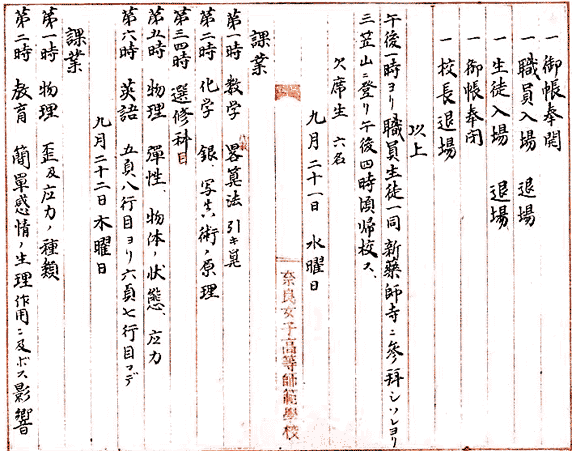 一 御帳奉開
一 職員入場 退場
一 生徒入場 退場
一 御帳奉閉
一 校長退場
以上
午後一時ヨリ職員生徒一同新薬師寺ニ参拝シソレヨリ
三笠山ニ登リ午後四時頃帰校ス、
欠席生 六名
九月二十一日 水曜日
奈良女子高等師範學校
課業
第一時 数学 畧算法 引キ
第二時 化学 銀、写真術ノ原理
第三四時 選修科目
第五時 物理 彈性、物体ノ状態、应力
第六時 英語 五頁八行目ヨリ六頁七行目マデ
九月二十二日 木曜日
課業
第一時 物理 歪及应力ノ種類
第二時 教育 簡單感情ノ生理作用ニ及ボス影響